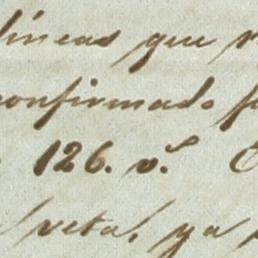 líneas que
confirmado
126. vº.
ya